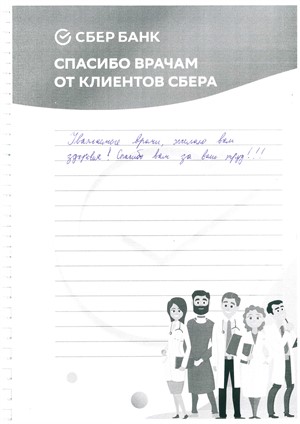 СБЕР БАНК
СПАСИБО ВРАЧАМ
ОТ КЛИЕНТОВ СБЕРА
Уважаемые врачи, желаю вам
здоровья! Спасибо вам за ваш труд!!!